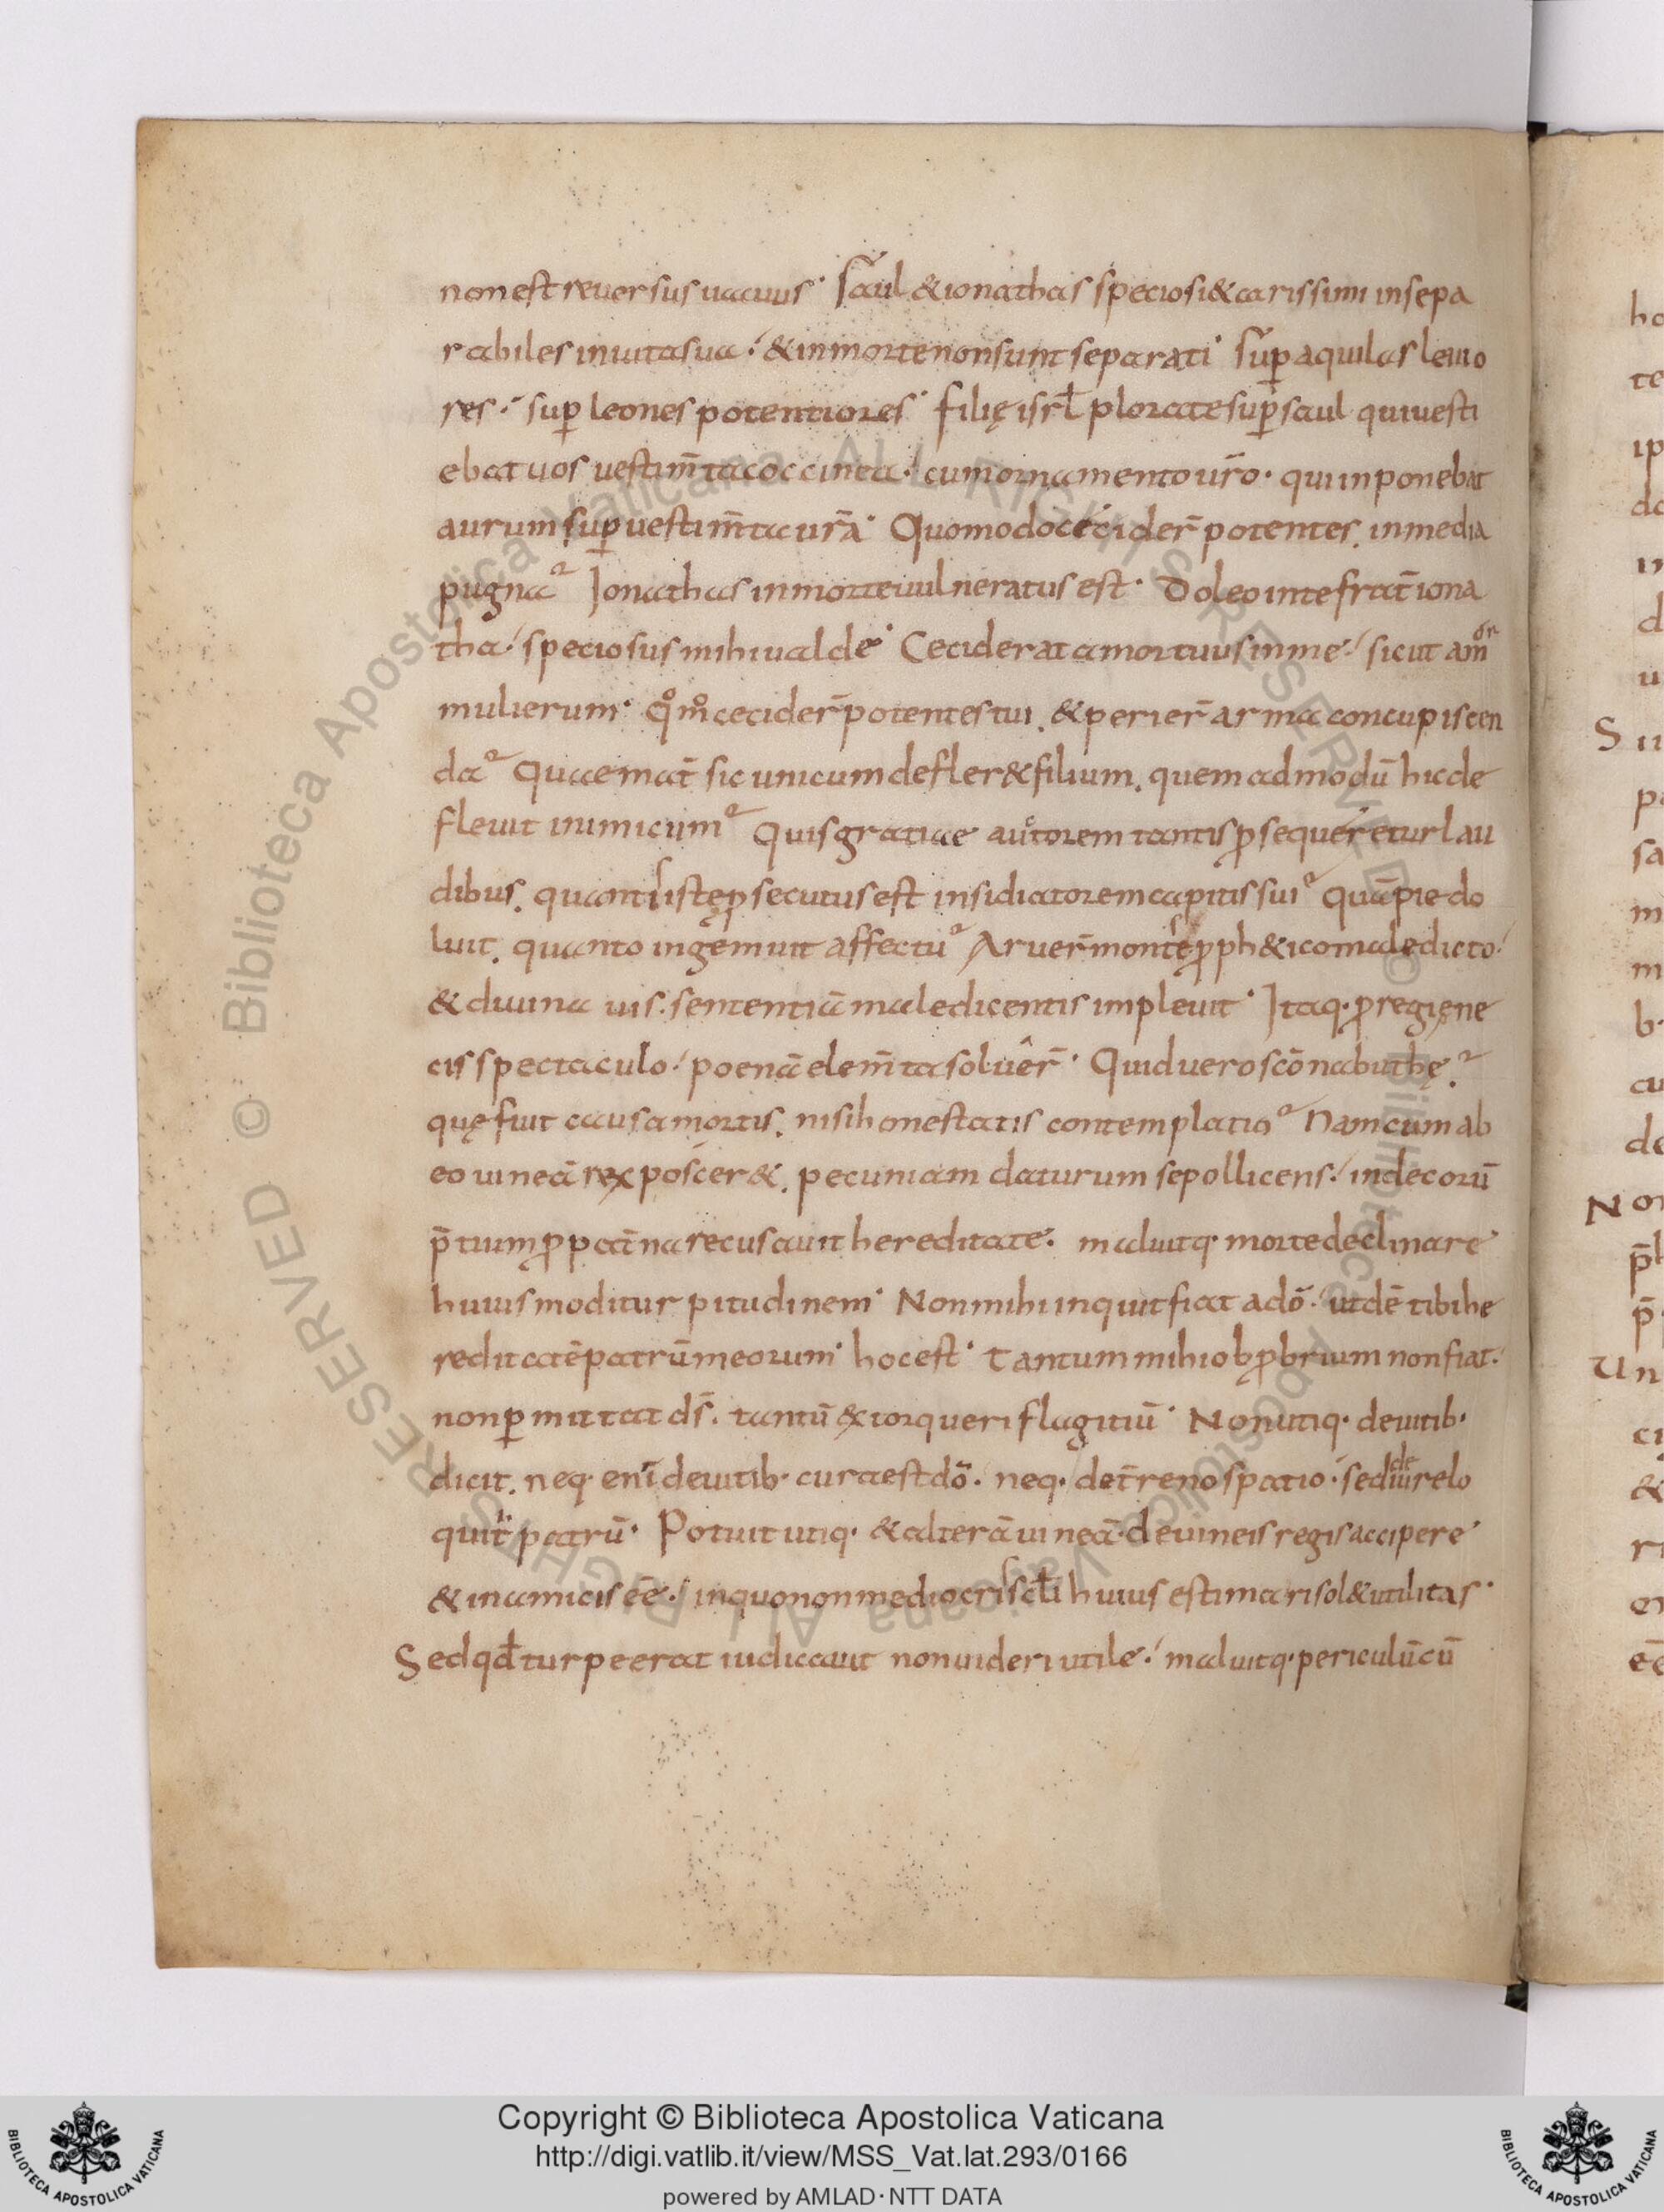 non est reuersus uacuus· Saul & ionathas speciosi & carissimi insepa
rabiles in uita sua·/ & in morte non sunt separati· Sup̱ aquilas leuio
res·/ sup̱ leones potentiores· filię isrł plorate sup̱ saul qui uesti
ebat uos uestim̄ta coccinea· cum ornamento ur̄o· qui inponebat
aurum sup̱ uestim̄ta ur̄a· Quomodo cecider̄ potentes. in media
pugna? Ionathas in morte uulneratus est· Doleo in te frat̄ iona
tha·/ speciosus mihi ualde· Ceciderat amor tuus in me·/ sicut amor
mulierum· qͦmͦ cecider̄ potentes tui. & perier̄ arma concupiscen
da? Quae mat̄ sic unicum defler& filium. quemadmodū hic de
fleuit inimicum? Quis gratiae autorem tantis ꝓsequeretur lau
dibus. quantis iste ꝓsecutus est insidiatorem capitis sui? Quā pie do
luit. quanto ingemuit affectu? Aruer̄ montes ꝓph&ico maledicto·/
& diuina uis· sententiā maledicentis impleuit· Itaq· ꝓ regię ne
cis spectaculo·/ poenā elem̄ta soluer̄· Quid uero sc̄o nabuthę·?
quę fuit causa mortis. nisi honestatis contemplatio? Nam cum ab
eo uineā rex poscer&. pecuniam daturum se pollicens·/ indecorū
p̄tium ꝓ pat̄na recusauit hereditate· maluitq· morte declinare
huiusmodi turpitudinem· Non mihi inquit fiat a dō·/ ut dē tibi he
reditatē patrū meorum· hoc est· Tantum mihi obꝓbrium non fiat·/
non p̱mittat ds̄· tantū extorqueri flagitiū· Non utiq· de uitib·
dicit. neq· enī de uitib· cura est dō· neq· de t̄reno spatio·/ sed de iure lo
quit̄ patrū· Potuit utiq· & alterā uineā· de uineis regis accipere
& in amicis ēē·/ in quo non mediocris sc̄li huius estimari sol& utilitas·
Sed qđ turpe erat iudicauit non uideri utile·/ maluitq· periculū cū
Biblioteca Apostolica Vaticana ALL RIGHTS RESERVED ©
Copyright © Biblioteca Apostolica Vaticana
http://digi.vatlib.it/view/MSS_Vat.lat.293/0166
powered by AMLAD·NTT DATA
BIBLIOTECA APOSTOLICA VATICANA
BIBLIOTECA APOSTOLICA VATICANA